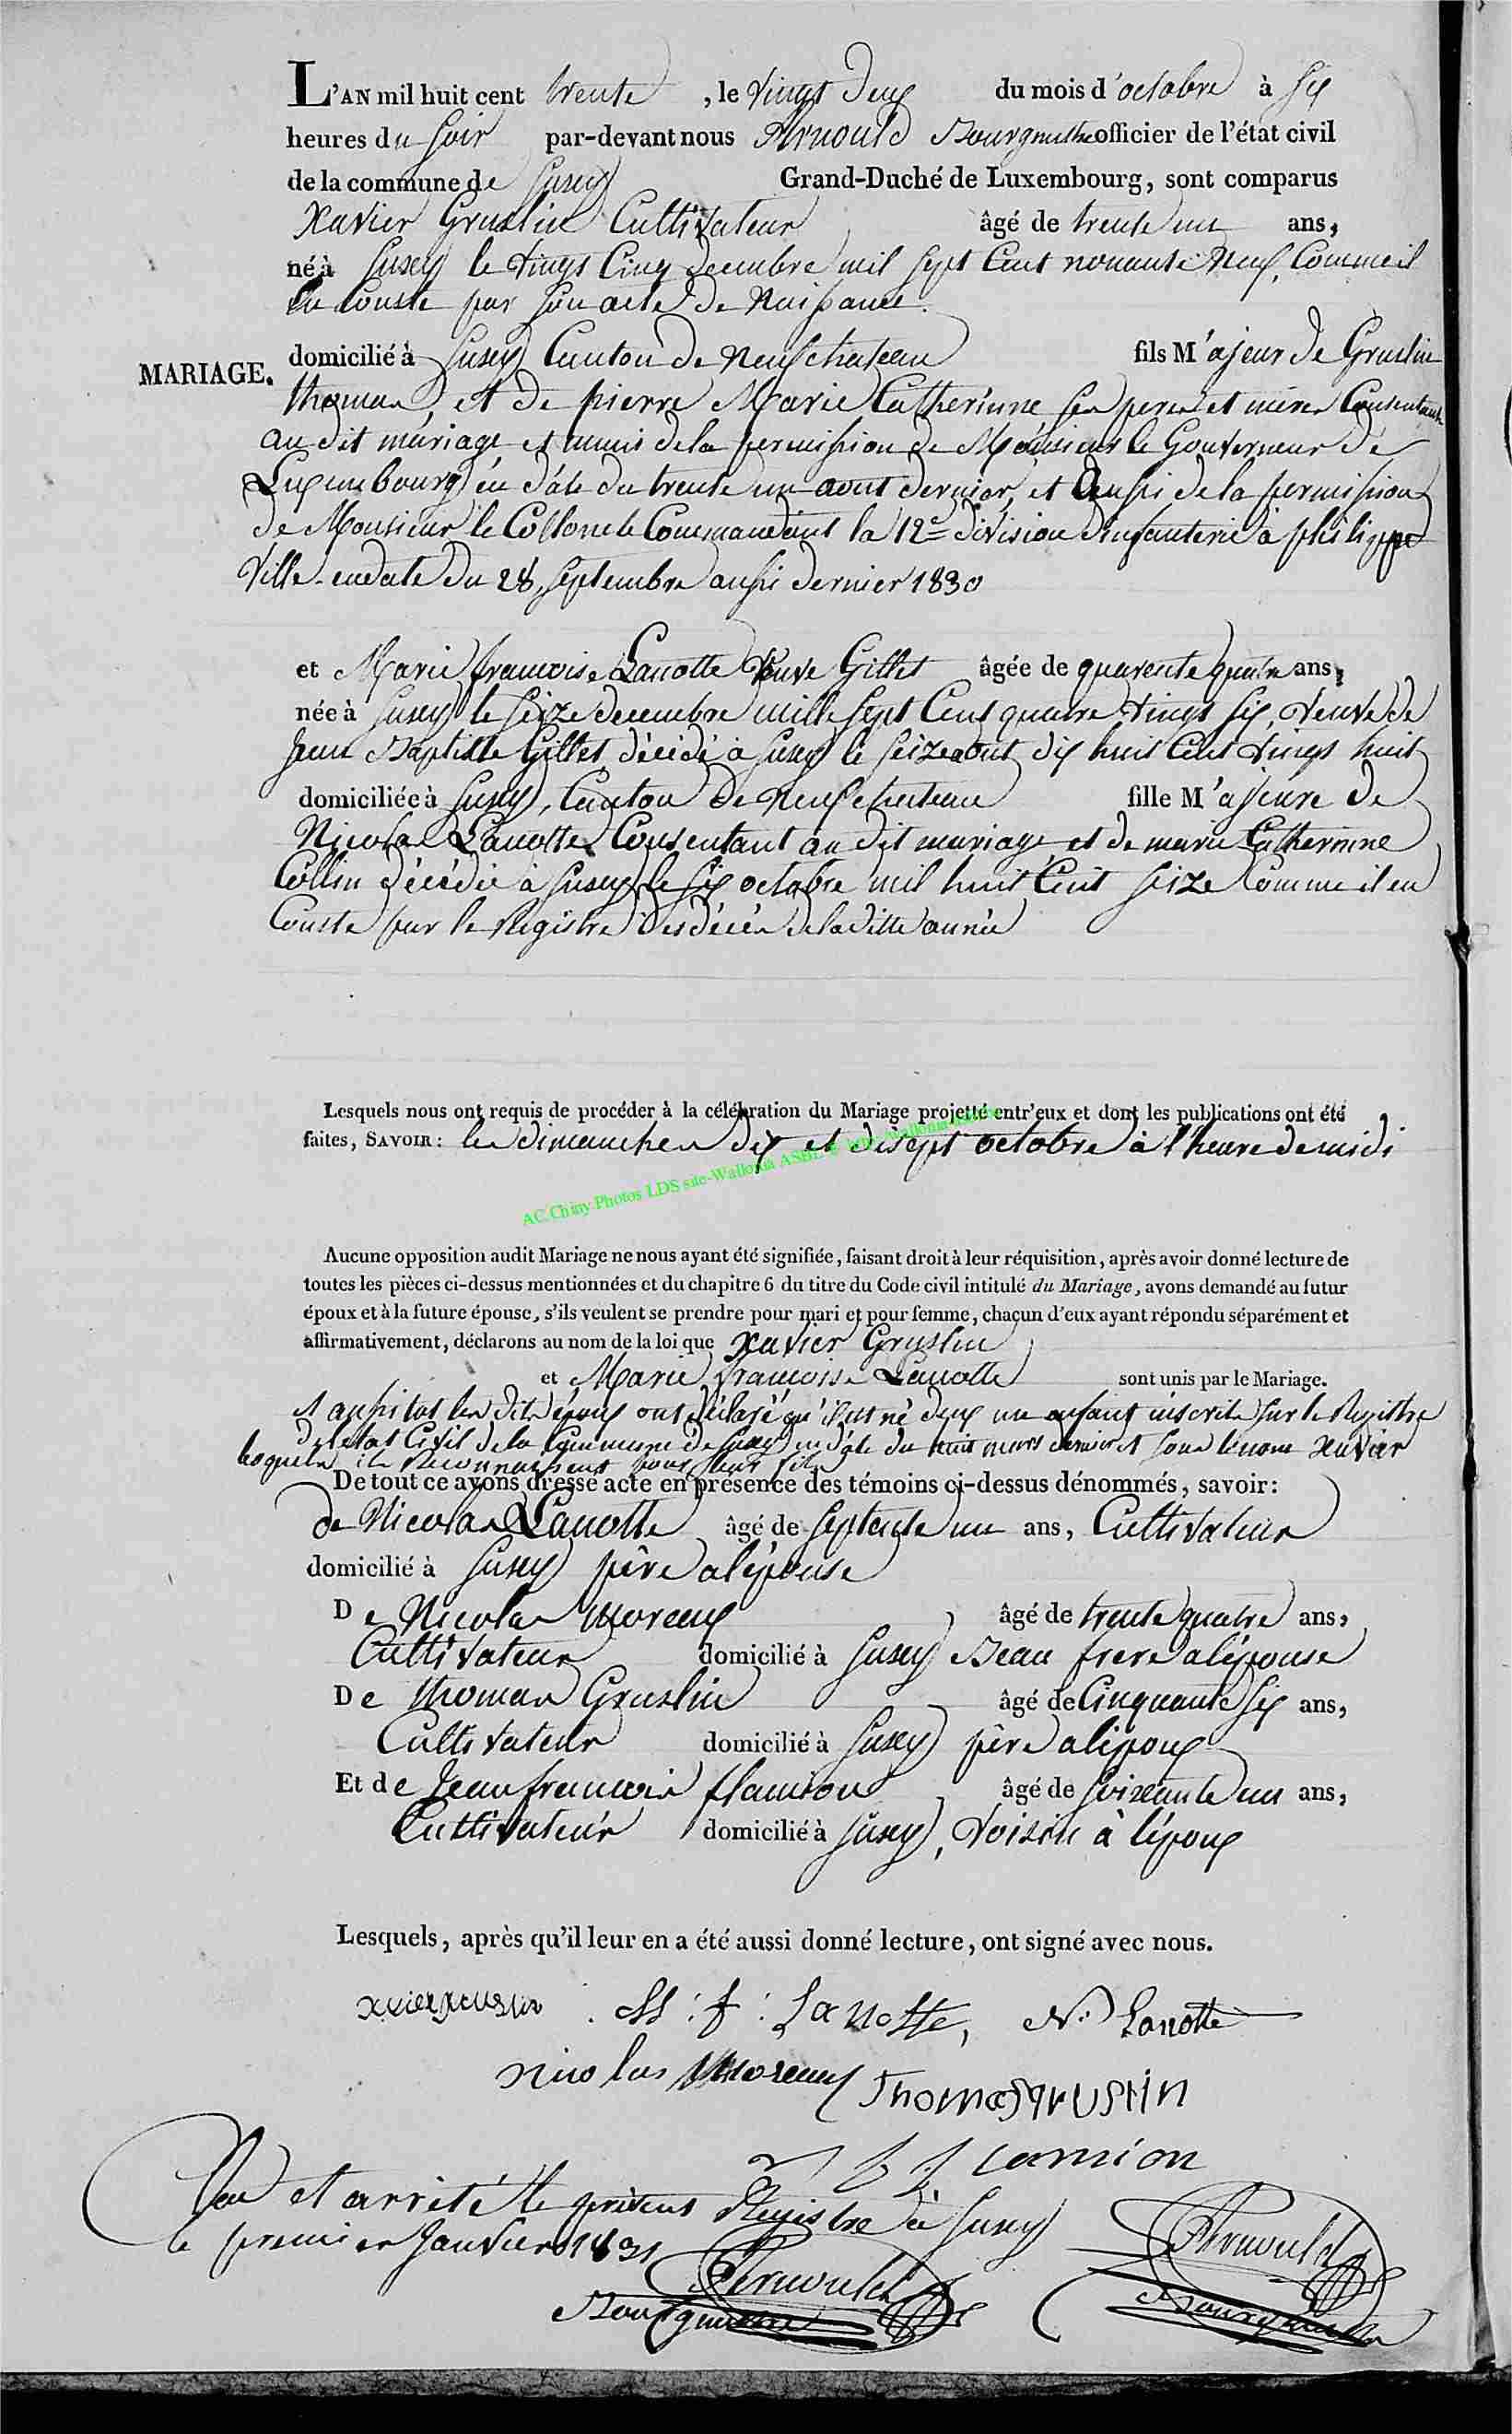 L'AN mil huit cent trente, le vingt deux du mois d'octobre à six
heures du soir par-devant nous Arnould Bourgmestre officier de l'état civil
de la commune de Suxy Grand-Duché de Luxembourg, sont comparus
Xavier Gruslin Cultivateur âgé de trente un ans,
né à Suxy le vingt Cinq decembre mil sept Cent nonante neuf, Comme il
en Conste par son acte de Naissance.
MARIAGE.
domicilié à Suxy Canton de neufchateau fils M'ajeur de Gruslin
thomas, et de pierre Marie Catherinne ses peres et mères Consentants
au dit mariage et munis de la permission de Monsieur le Gouverneur de
Luxembourg en date du trente un aout dernier, et Aussi de la permission
de Monsieur le Collonele Commandant la 12e division d'infanterie à philippe
Ville en date du 28 septembre aussi dernier 1830
et Marie francoise Lanotte Veuve Gillet âgée de quarente quatre ans,
née à Suxy le seize decembre mille sept Cent quatre vingt six, Veuve de
Jean Baptiste Gillet, décédé à Suxy le seize aout dix huit Cent vingt huit
domiciliée à Suxy, Canton de Neufchateau fille M'ajeure de
Nicolas Lanotte Consentant au dit mariage et de marie Catherinne
Collin décédée à Suxy le six octobre mil huit Cent seize Comme il en
Conste par le Registre des décès de la ditte année
Lesquels nous ont requis de procéder à la célébration du Mariage projetté entr'eux et dont les publications ont été
faites, SAVOIR: les dimanches dix et disept octobre à l'heure de midi
AC.Chiny.Photos LDS site-Wallonia ASBL
Aucune opposition audit Mariage ne nous ayant été signifiée, faisant droit à leur réquisition, après avoir donné lecture de
toutes les pièces ci-dessus mentionnées et du chapitre 6 du titre du Code civil intitulé du Mariage, avons demandé au futur
époux et à la future épouse, s'ils veulent se prendre pour mari et pour femme, chacun d'eux ayant répondu séparément et
affirmativement, déclarons au nom de la loi que Xavier Gruslin
et Marie francoise Lanotte sont unis par le Mariage.
et aussitot les dits époux ont déclaré qu'il est né deux un enfant inscrit sur le Registre
de l'état Civil de la Commune de Suxy en date du huit mars dernier et sous le nom Xavier
lequel ils Reconnoissent pour leur fils
De tout ce avons dressé acte en présence des témoins ci-dessus dénommés, savoir:
de Nicolas Lanotte âgé de septente un ans, Cultivateur
domicilié à Suxy père a l'épouse
De Nicolas Moreaux âgé de trente quatre ans,
Cultivateur domicilié à Suxy Beau frere a l'épouse
De thomas Gruslin âgé de Cinquante six ans,
Cultivateur domicilié à Suxy père a l'époux
Et de Jean francois flamion âgé de soixante un ans,
Cultivateur domicilié à Suxy, Voisin à l'époux
Lesquels, après qu'il leur en a été aussi donné lecture, ont signé avec nous.
M: f: Lanotte, N: Lanotte
nicolas Moreaux Thomas gruslin
Vu et arrêté le présent Registre à Suxy
le premier Janvier 1831
Arnould Arnould
Bourgmestre Bourgmestre